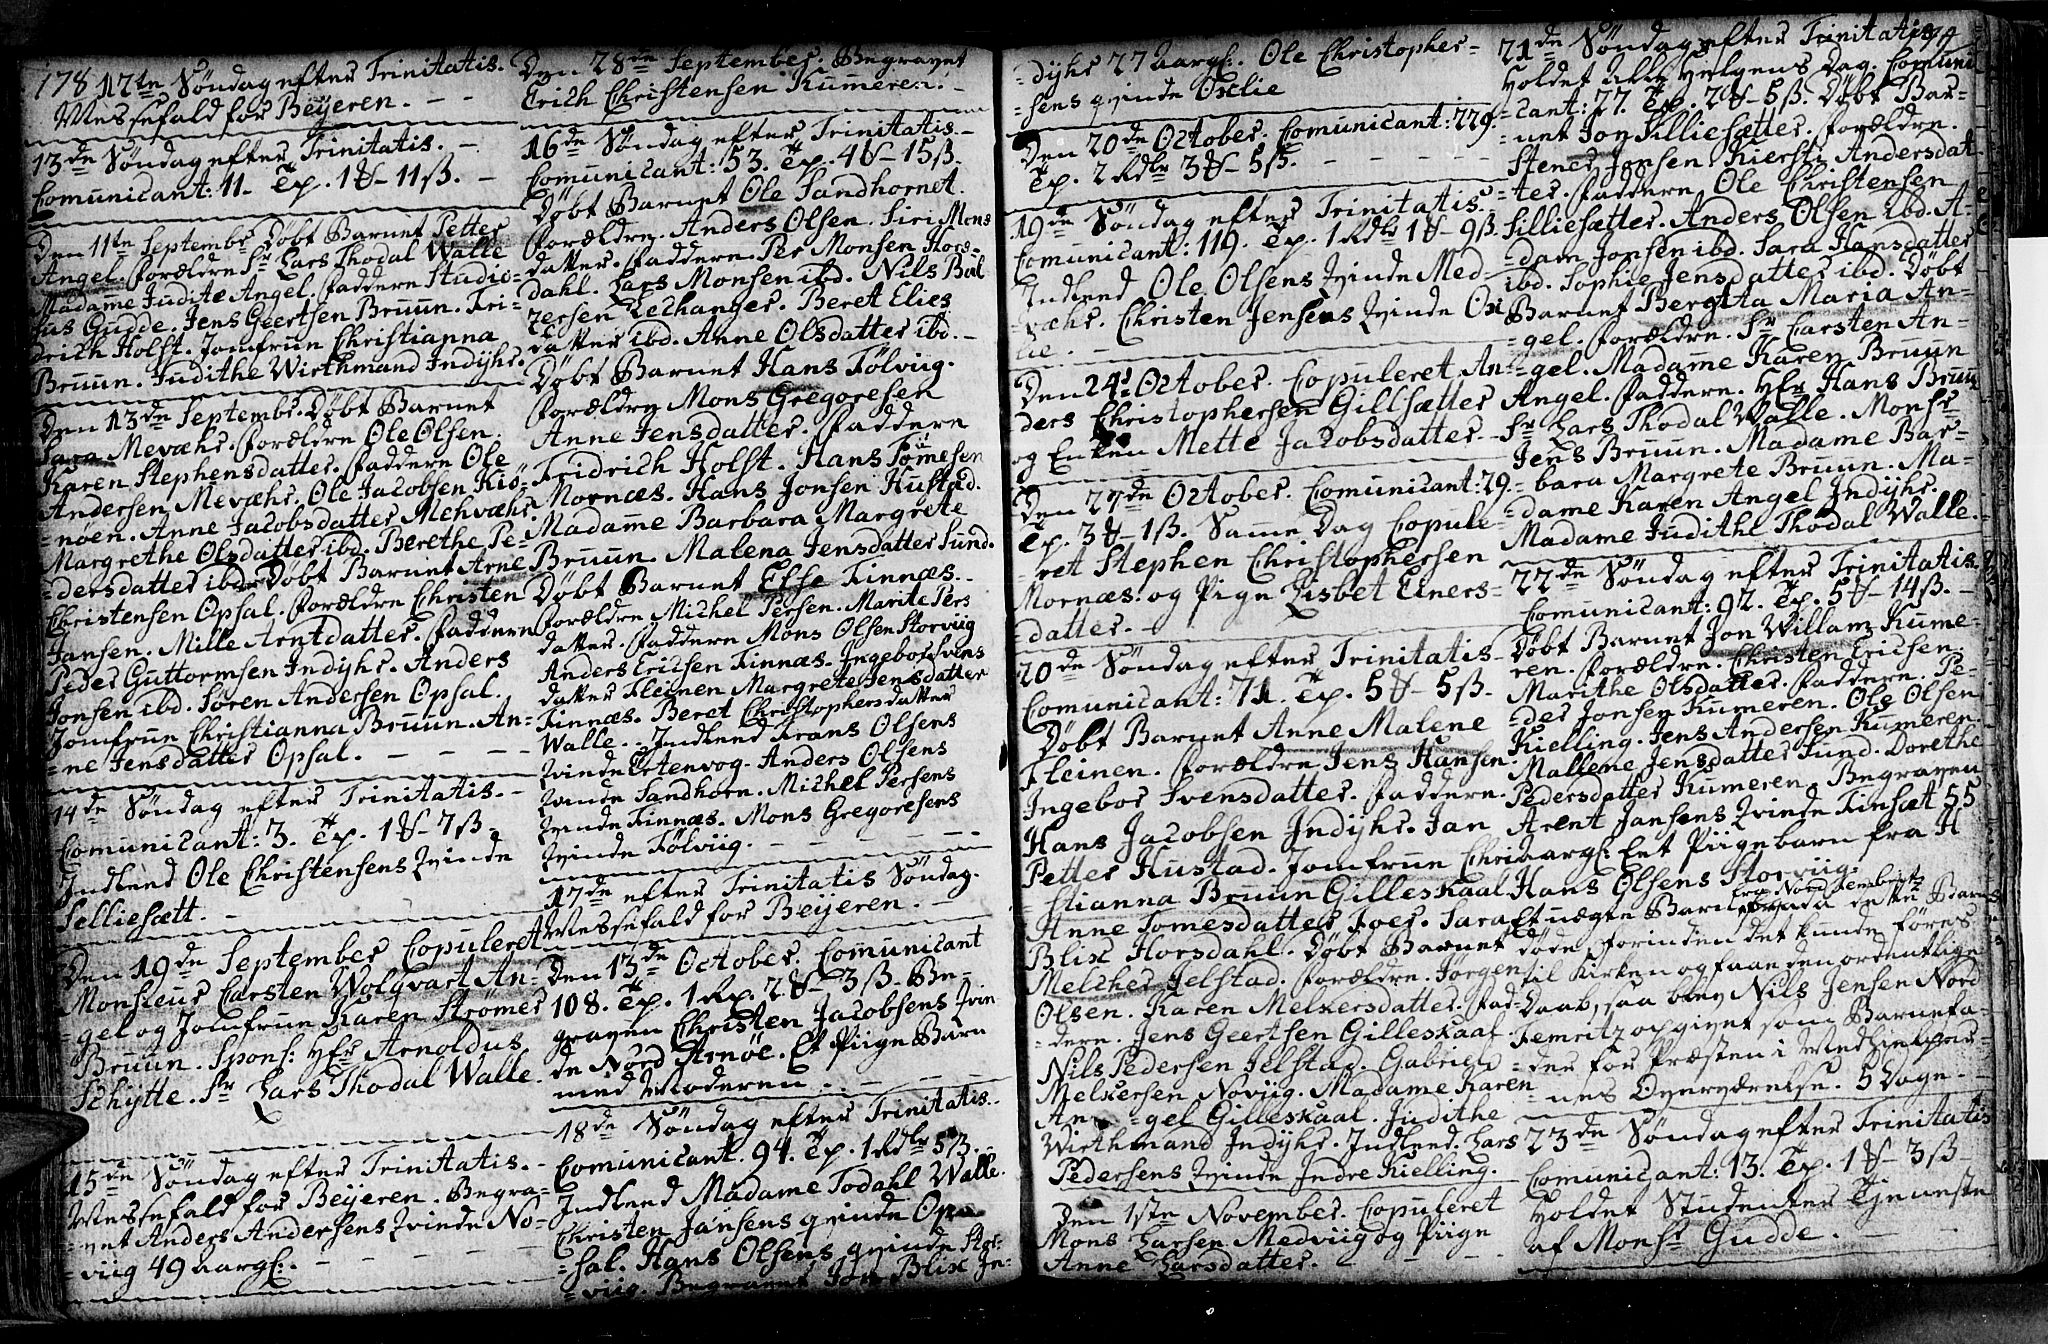 178
12te Søndag efter Trinitatis.
Messefald for Beyeren. - -
13de Søndag efter Trinitatis. -
Comunicant: 11. Tp. 1 ₰ - 11 ß. -
Den 11te Septembr. Døbt Barnet Petter
Angel. forældre Sr Lars Thodal Walle
Madame Judite Angel. faddere Studio-
sus Gudde. Jens Geertsen Bruun. Fri-
drich Holst. Jomfrue Christianna
Bruun. Judithe Wirthmand Indyhr.
Den 13de Septembr. Døbt Barnet
Sara Mevæhr. forældre Ole Olsen.
Karen Stephensdatter. faddere Ole
Andersen Mevæhr. Ole Jacobsen Kiö-
=nöen. Anne Jacobsdatter Mehvæhr
Margrethe Olsdatter ibd. Berethe Pe-
=dersdatter ibd. Døbt Barnet Arne
Christensen Opsal. forældre Christen
Jansen. Mille Arntdatter. faddere
Peder Guttormsen Indyhr. Anders
Jonsen ibd. Søren Andersen Opsal.
Jomfrue Christianna Bruun. An-
=ne Jensdatter Opsal. - - - -
14de Søndag efter Trinitatis. -
Comunicant: 3. Tp. 1 ₰ - 7 ß.
Indlend Ole Christensens Qvinde
Selliesætt. -
Den 19de September Copuleret
Monsieur Carsten Wolqvart An-
=gel og Jomfrue Karen Strømer
Bruun. Spons: Hr Arnoldus
Schytte. Sr Lars Thodal Walle.
15de Søndag efter Trinitatis. -
Messefald for Beyeren. Begra-
=vet Anders Andersens Qvinde No-
=viig 49 aarg: - - - -
Den 28de September. Begravet
Erich Christensen Kumeren. -
16de Søndag efter Trinitatis. -
Comunicant: 53. Tp. 4 ₰ - 15 ß.
Døbt Barnet Ole Sandhornet.
forældre. Anders Olsen. Siri Mons
datter. faddere. Per Monsen Hors-
dahl. Lars Monsen ibd. Nils Bal
zersen Lechanger. Beret Elies
datter ibd. Anne Olsdatter ibd. -
Døbt Barnet Hans Fölviig.
forældre Mons Gregoresen
Anne Jensdatter. faddere
Fridrich Holst. Hans Tömesen
Mornæs. Hans Jonsen Hustad.
Madame Barbara Margrete
Bruun. Malena Jensdatter Sund.
Døbt Barnet Effe Finnæs. -
forældre Michel Persen. Marite Pers
datter. faddere Mons Olsen Storviig
Anders Ericsen Finnæs. Ingebor Svens
datter Fleinen Margrete Jensdatter
Finnæs. Beret Christophersdatter
Walle. - Indlend Frans Olsens
Qvinde Ertenvog. Anders Olsens
Qvinde Sandhorn. Michel Persens
Qvinde Finnæs. Mons Gregoresens
Qvinde Fölviig. - - - -
17de efter Trinitatis Søndag.
Messefald for Beyeren. -
Den 13de October. Comunicant
108. Tp. 1 Rp. 2 ₰ - 3 ß. Be-
graven Christen Jacobsens Qvin
de Nord Arnöe. Et Piige Barn
med Moderen. - - - -
18de Søndag efter Trinitatis.
Comunicant. 94. Tp. 1 Rdlr 5 ß.
Indlend Madame Todahl Walle.
Christen Jansens qvinde Op-
=sal. Hans Olsens qvinde Stor-
=viig. Begravet Jon Blix In-
=dyhr 27 Aarg: Ole Christopher-
=sens qvinde Oxlie
Den 20de October. Comunicant: 229.
Tp. 2 Rdlr 3 ₰ - 5 ß. - - - -
19de Søndag efter Trinitatis. -
Comunicant: 119. Tp. 1 Rdlr 1 ₰ - 9 ß.
Indlend Ole Olsens Qvinde Med-
=væhr. Christen Jensens Qvinde Ox-
lie. -
Den 24d October. Copuleret An-
ders Christophersen Gillsætter
og Enken Mette Jacobsdatter. -
Den 27de October. Comunicant: 29.
Tp. 3 ₰ - 1 ß. Samme Dag Copule-
=ret Stephen Christophersen
Mornæs. og Pige Lisbet Eners-
=datter. -
20de Søndag efter Trinitatis -
Comunicant: 71. Tp. 5 ₰ - 5 ß.
Døbt Barnet Anne Malene
Fleinen. forældre Jens Hansen.
Ingebor Svensdatter. faddere.
Hans Jacobsen Indyhr. Jan
Petter Hustad. Jomfrue Chri
=stianna Bruun Gilleskaal
Anne Tomesdatter Foer. Sara
Blix Horsdahl. Døbt Barnet
Melcher Jelstad. forældre. Jörgen
Olsen. Karen Melkersdatter. fad-
=dere. Jens Geertsen Gilleskaal
Nils Pedersen Jelstad. Gabriel
Melkersen Noviig. Madame Karen
An- =gel Gilleskaal. Judithe
Wirthmand Indyhr. Indlend. Lars
Pedersens Qvinde Indre Kielling.
Den 1ste November. Copuleret
Mons Larsen Medviig og Piige
Anne Larsdatter. - - -
179
21de Søndag efter Trinitatis
Holdet Alle Helgens Dag. Comuni
=cant: 77. Tp. 2 ₰ - 5 ß. Døbt Bar-
=net Jon Silliesætter. forældre.
Stener Jonsen. Kierstj Andersdat
=ter. faddere Ole Christensen
Silliesætter. Anders Olsen ibd. A-
=dam Jonsen ibd. Sara Hansdatter
ibd. Sophie Jensdatter ibd. Døbt
Barnet Bergitta Maria An-
=gel. forældre. Sr Carsten An-
=gel. Madame Karen Bruun
Angel. faddere. Hr Hans Bruun
Sr Lars Thodal Walle. Monsr
Jens Bruun. Madame Bar-
=bara Margrete Bruun. Ma-
=dame Karen Angel Indyhr.
Madame Judithe Thodal Walle.
22de Søndag efter Trinitatis.
Comunicant: 92. Tp. 5 ₰ - 14 ß. -
Døbt Barnet Jon Willam Kume-
ren. forældre. Christen Ericsen.
Marithe Olsdatter. faddere. Pe-
=der Jonsen Kumeren. Ole Olsen
Kielling. Jens Andersen Kumeren.
Mallene Jensdatter Sund. Dorethe
Pedersdatter Kumeren. Begraven
Arent Jansens Qvinde Finsæt 55
aarg: Eet Piigebarn fra H
Hans Olsens Storviig.
Et uægte Barn fra Nord Fembritz da dette Barn
döde, forinden det kunde föres
til Kirken og faae den ordentlige
Daab, saa blev Nils Jensen Nord
Femritz opgivet som Barnefa-
=der for Præsten i Medhielper-
=nes Overværelse. 5 Dage. -
23de Søndag efter Trinitatis
Comunicant: 13. Tp. 1 ₰ - 3 ß. -
Holdet Studenter Tjeneste
af Monsr Gudde. - -